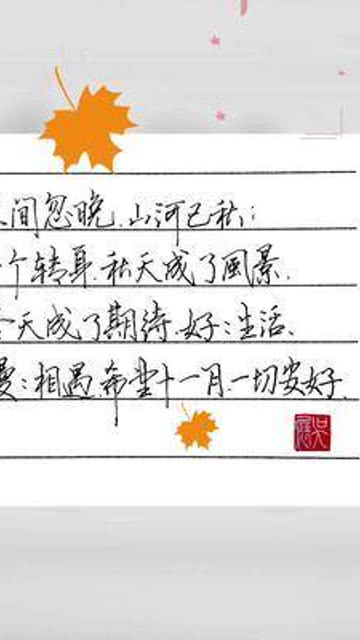 间忽晚.山河已秋;
个转身.秋天成了風景.
天成了期待.好:生活、
:相遇.希望十一月.一切安好.